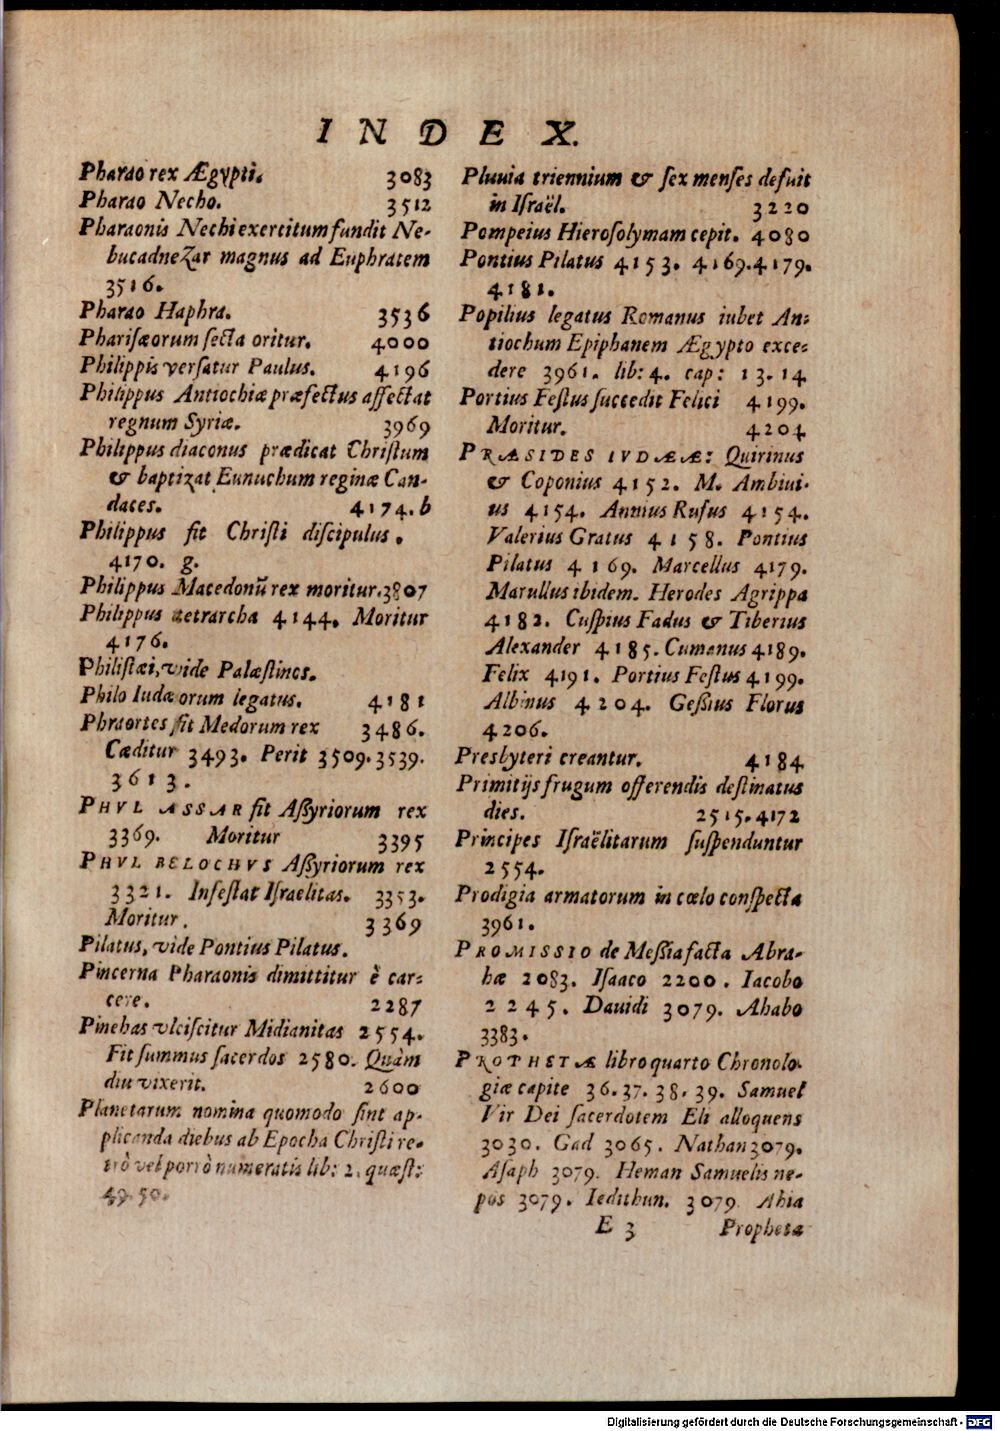 INDEX.
Pharao rex Ægypti. 3083
Pharao Necho. 3512
Pharaonis Nechi exercitum fundit Ne-
bucadneZar magnus ad Euphratem
3516.
Pharao Haphra. 3536
Pharisæorum secta oritur. 4000
Philippis versatur Paulus. 4196
Philippus Antiochiæ præfectus affectat
regnum Syriæ. 3969
Philippus diaconus prædicat Christum
& baptizat Eunuchum reginæ Can-
daces. 4174. b
Philippus fit Christi discipulus.
4170. g.
Philippus Macedonū rex moritur. 3807
Philippus tetrarcha 4144. Moritur
4176.
Philistæi, vide Palæstines.
Philo Iudæorum legatus. 4181
Phraortes fit Medorum rex 3486.
Cæditur 3493. Perit 3509. 3539.
3613.
PHVL ASSAR fit Aßyriorum rex
3369. Moritur 3395
PHVL BELOCHVS Aßyriorum rex
3321. Infestat Israelitas. 3353.
Moritur. 3369
Pilatus, vide Pontius Pilatus.
Pincerna Pharaonis dimittitur è car-
cere. 2287
Pinehas vlciscitur Midianitas 2554.
Fit summus sacerdos 2580. Quàm
diu vixerit. 2600
Planetarum nomina quomodo sint ap-
plicanda diebus ab Epocha Christi re-
trò vel porrò numeratis lib: 2. quæst:
49. 50.
Pluuia triennium & sex menses defuit
in Israël. 3220
Pompeius Hierosolymam cepit. 4080
Pontius Pilatus 4153. 4169. 4179.
4181.
Popilius legatus Romanus iubet An-
tiochum Epiphanem Ægypto exce-
dere 3961. lib: 4. cap: 13. 14
Portius Festus succedit Felici 4199.
Moritur. 4204
PRÆSIDES IVDÆÆ: Quirinus
& Coponius 4152. M. Ambiui-
us 4154. Annius Rufus 4154.
Valerius Gratus 4158. Pontius
Pilatus 4169. Marcellus 4179.
Marullus ibidem. Herodes Agrippa
4182. Cuspius Fadus & Tiberius
Alexander 4185. Cumanus 4189.
Felix 4191. Portius Festus 4199.
Albinus 4204. Geßius Florus
4206.
Presbyteri creantur. 4184
Primitijs frugum offerendis destinatus
dies. 2515. 4172
Principes Israëlitarum suspenduntur
2554.
Prodigia armatorum in cœlo conspecta
3961.
PROMISSIO de Meßia facta Abra-
hæ 2083. Isaaco 2200. Iacobo
2245. Dauidi 3079. Ahabo
3383.
PROPHETÆ libro quarto Chronolo-
giæ capite 36. 37. 38. 39. Samuel
Vir Dei sacerdotem Eli alloquens
3030. Gad 3065. Nathan 3079.
Asaph 3079. Heman Samuelis ne-
pos 3079. Iedithun. 3079. Ahia
E 3 Propheta
Digitalisierung gefördert durch die Deutsche Forschungsgemeinschaft - DFG